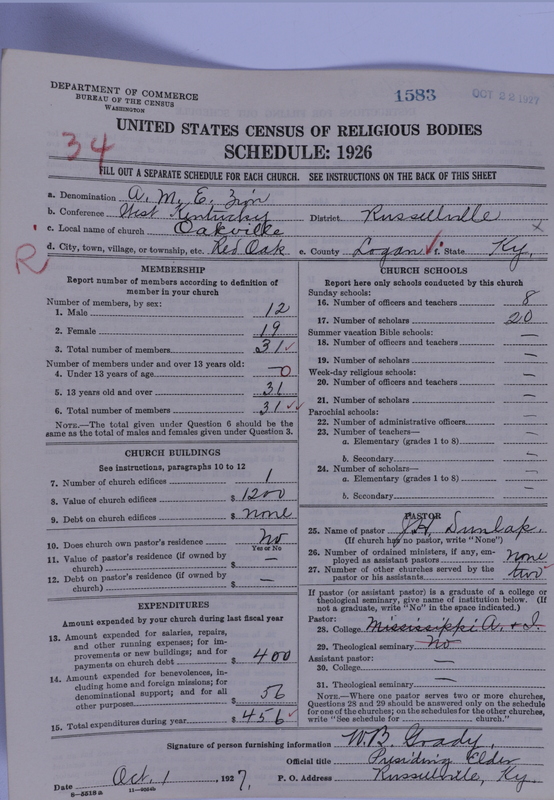 DEPARTMENT OF COMMERCE
BUREAU OF THE CENSUS
WASHINGTON
1583
OCT 22 1927
34
UNITED STATES CENSUS OF RELIGIOUS BODIES
SCHEDULE: 1926
FILL OUT A SEPARATE SCHEDULE FOR EACH CHURCH. SEE INSTRUCTIONS ON THE BACK OF THIS SHEET
a. Denomination A. M. E. Zion
b. Conference West Kentucky District Russellville
c. Local name of church Oakville x
d. City, town, village, or township, etc. Red Oak e. County Logan f. State Ky.
R
MEMBERSHIP
Report number of members according to definition of
member in your church
Number of members, by sex:
1. Male 12
2. Female 19
3. Total number of members 31
Number of members under and over 13 years old:
4. Under 13 years of age 0
5. 13 years old and over 31
6. Total number of members 31
NOTE.—The total given under Question 6 should be the
same as the total of males and females given under Question 3.
CHURCH BUILDINGS
See instructions, paragraphs 10 to 12
7. Number of church edifices 1
8. Value of church edifices $ 1200
9. Debt on church edifices $ none
10. Does church own pastor's residence? No
Yes or No
11. Value of pastor's residence (if owned by
church) $ —
12. Debt on pastor's residence (if owned by
church) $ —
EXPENDITURES
Amount expended by your church during last fiscal year
13. Amount expended for salaries, repairs,
and other running expenses; for im-
provements or new buildings; and for
payments on church debt $ 400
14. Amount expended for benevolences, in-
cluding home and foreign missions; for
denominational support; and for all
other purposes $ 56
15. Total expenditures during year $ 456
CHURCH SCHOOLS
Report here only schools conducted by this church
Sunday schools:
16. Number of officers and teachers 8
17. Number of scholars 20
Summer vacation Bible schools:
18. Number of officers and teachers —
19. Number of scholars —
Week-day religious schools:
20. Number of officers and teachers —
21. Number of scholars —
Parochial schools:
22. Number of administrative officers —
23. Number of teachers—
a. Elementary (grades 1 to 8) —
b. Secondary —
24. Number of scholars—
a. Elementary (grades 1 to 8) —
b. Secondary —
PASTOR
25. Name of pastor J. H. Dunlap
(If church has no pastor, write "None")
26. Number of ordained ministers, if any, em-
ployed as assistant pastors none
27. Number of other churches served by the
pastor or his assistants two
If pastor (or assistant pastor) is a graduate of a college or
theological seminary, give name of institution below. (If
not a graduate, write "No" in the space indicated.)
Pastor:
28. College Mississippi A. & I.
29. Theological seminary No
Assistant pastor:
30. College —
31. Theological seminary —
NOTE.—Where one pastor serves two or more churches,
Questions 28 and 29 should be answered only on the schedule
for one of the churches; on the schedules for the other churches,
write "See schedule for church."
Signature of person furnishing information W. B. Grady,
Official title Presiding Elder
Date Oct. 1, 1927. P. O. Address Russellville, Ky.
8-5518a 11-9024b